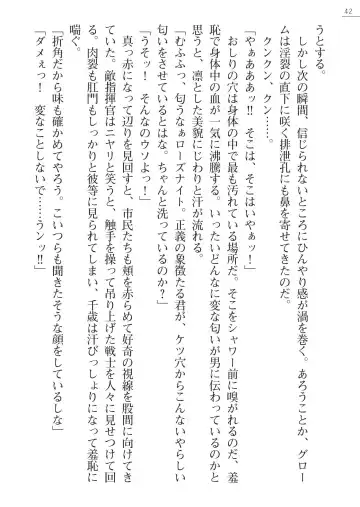 42
うとする。
しかし次の瞬間、信じられないところにひんやり感が渦を巻く。あろうことか、グロー
ムは淫裂の直下に咲く排泄孔にも鼻を寄せてきたのだ。
クンクン、クン……。
「やぁあああッ！　そこは、そこはいやぁッ！」
おしりの穴は身体の中で最も汚れている場所だ。そこをシャワー前に嗅がれるのだ、羞
恥で身体中の血が一気に沸騰する。いったいどんなに変な匂いが男に伝わっているのかと
思うと、凛とした美貌にじわりと汗が流れる。
「むふふっ、匂うなぁローズナイト。正義の象徴たる君が、ケツ穴からこんないやらしい
匂いをさせているとはな。ちゃんと洗っているのか？」
「うそッ！　そんなのウソよっ！」
真っ赤になって辺りを見回すと、市民たちも頬を赤らめて好奇の視線を股間に向けてき
ていた。敵指揮官はニヤリと笑うと、触手を操って吊り上げた戦士を人々に見せつけて回
る。肉裂も肛門もしっかりと彼等に見られてしまい、千歳は汗びっしょりになって羞恥に
喘ぐ。
「折角だから味も確かめてやろう。こいつらも聞きたそうな顔をしているしな」
「ダメぇっ！　変なことしないで……うンッ!!」